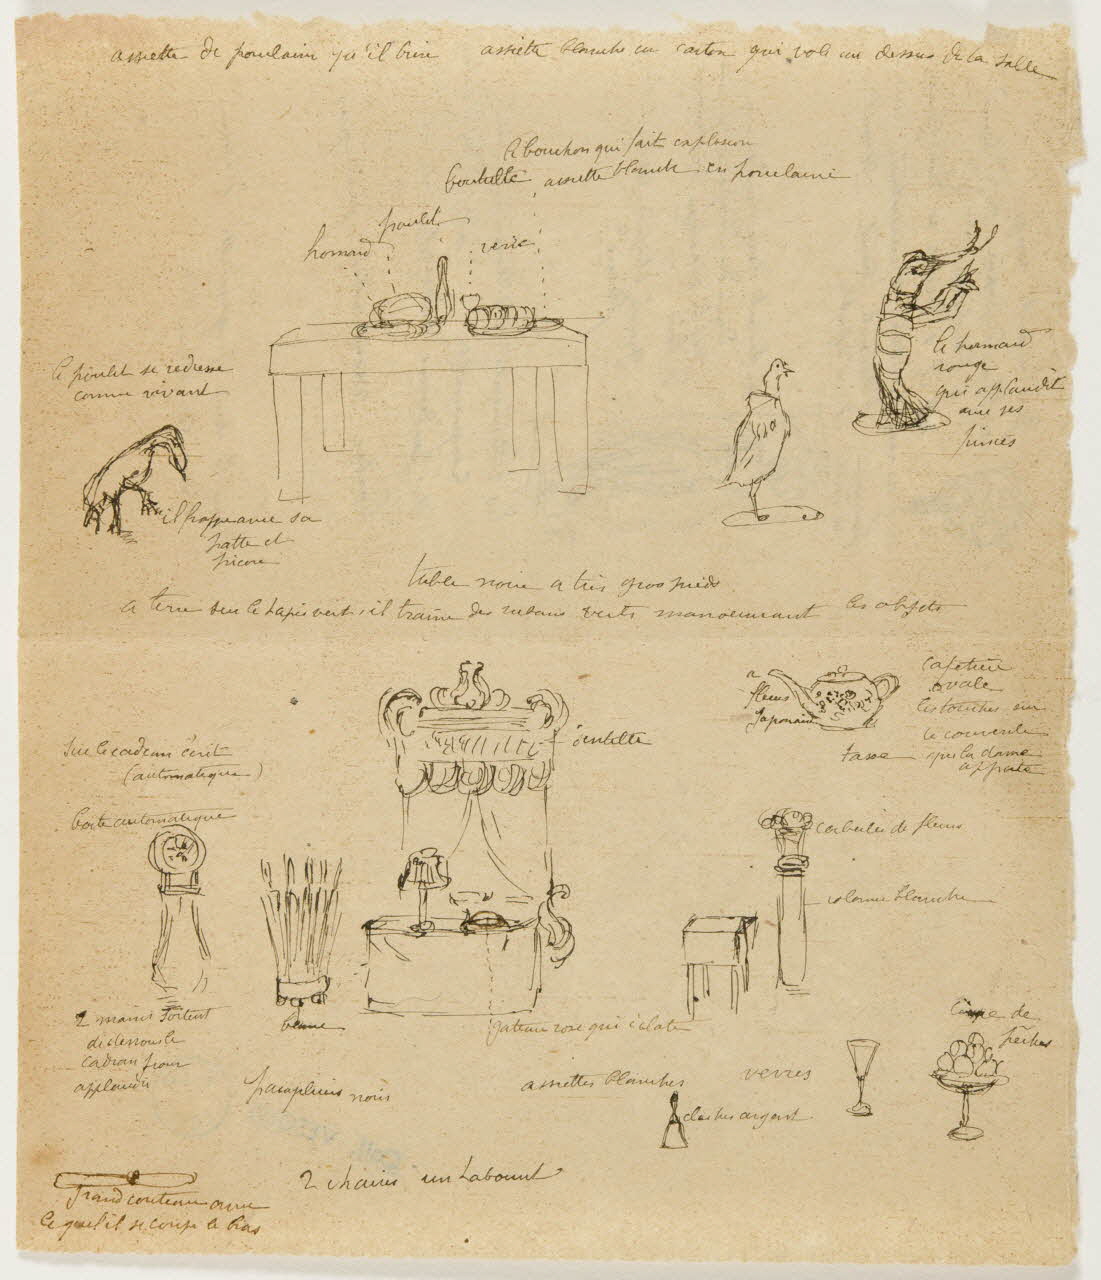 assiette de porcelaine qu'il brise
assiette blanche en carton qui vole au dessus de la salle
a bouchon qui fait explosion
bouteille assiette blanche en porcelaine
poulet
homard
verre
le poulet se redresse
comme vivant
le homard
rouge
qui applaudit
avec ses
pinces
il frappe avec sa
patte et
picore
table noire a très gros pieds
a terre sur le tapis vert, il traine des rubans verts manoeuvrant les objets
a
fleurs
Japonaises
cafetière
ovale
les touches sur
le couvercle
que la dame
apporte
tasse
dentelle
sur le cadran écrit
(automatique)
boite automatique
corbeilles de fleurs
colonne blanche
2 mains sortent
de dessous le
cadran pour
applaudir
gateau rose qui éclate
coupe de
pêches
assiettes blanches
verres
cloches argent
2 chaises un tabouret
grand couteau avec
lequel il se coupe le bras